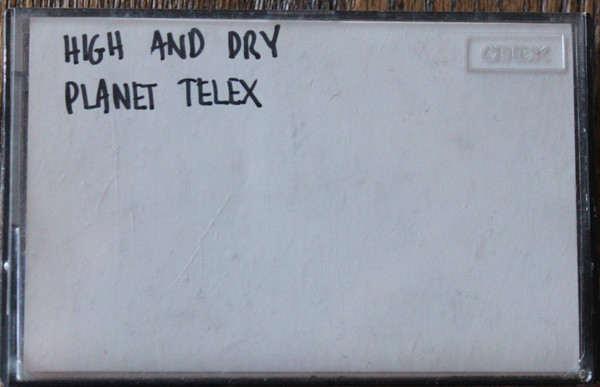 HIGH AND DRY
PLANET TELEX